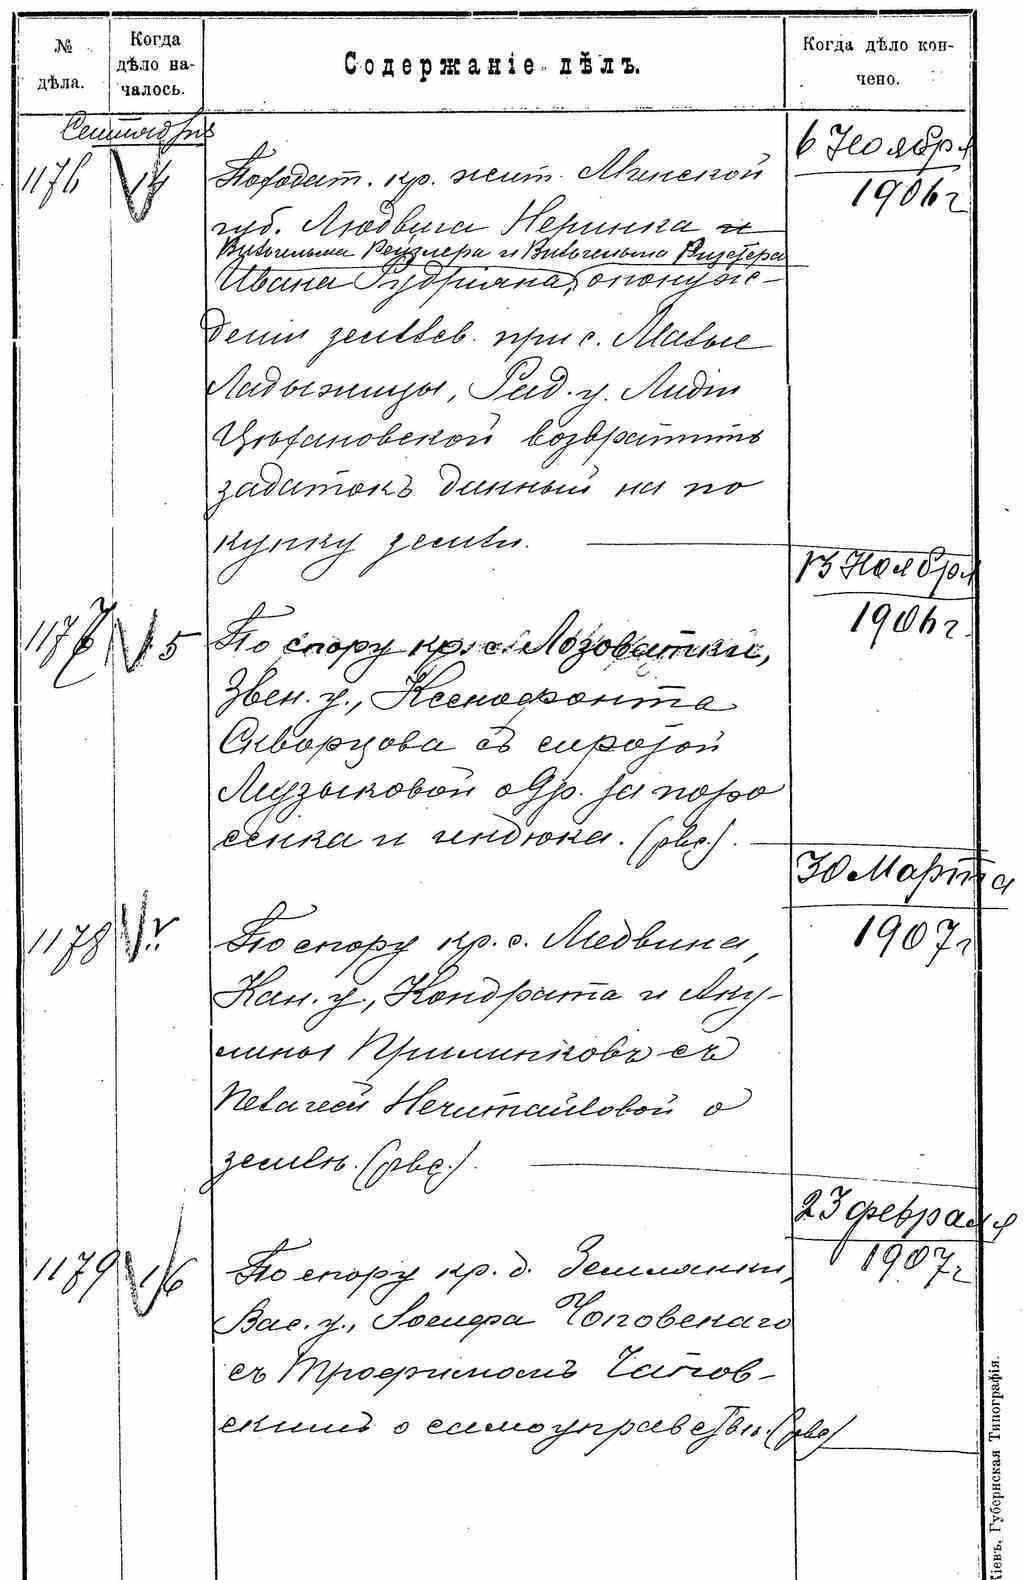 № дѣла.
Когда дѣло на-
чалось.
Содержаніе дѣлъ.
Когда дѣло кон-
чено.
Сентября
1176
14
По ходат. кр. жит. Минской
губ. Людвига Неринка и
Вильгельма Рейзлера и Вильгельма Ризтера
Ивана Гудріяна, о понуж-
деніи землев. при с. Малые
Ладыжицы, Рад. у. Лидіи
возвратить
задатокъ данный на по
купку земли.
6 Ноября
1906 г
1177
15
По спору кр. с. Лозоватки,
Звен. у., Ксенофонта
Скворцова съ сиротой
Музыковой о др. за поро
сенка и индюка. (рвс.).
13 Ноября
1906 г.
1178
По спору кр. с. Медвина,
Кан. у., Кондрата и Аку-
лины съ
Пелагеей Нечитайловой о
землѣ. (рвс.).
30 Марта
1907 г
1179
16
По спору кр. д. Землянки,
Вас. у., Іосифа Чоповскаго
съ Трофимомъ Чапов-
скимъ о самоуправствѣ. (рвс)
23 февраля
1907 г
Кіевъ. Губернская Типографія.